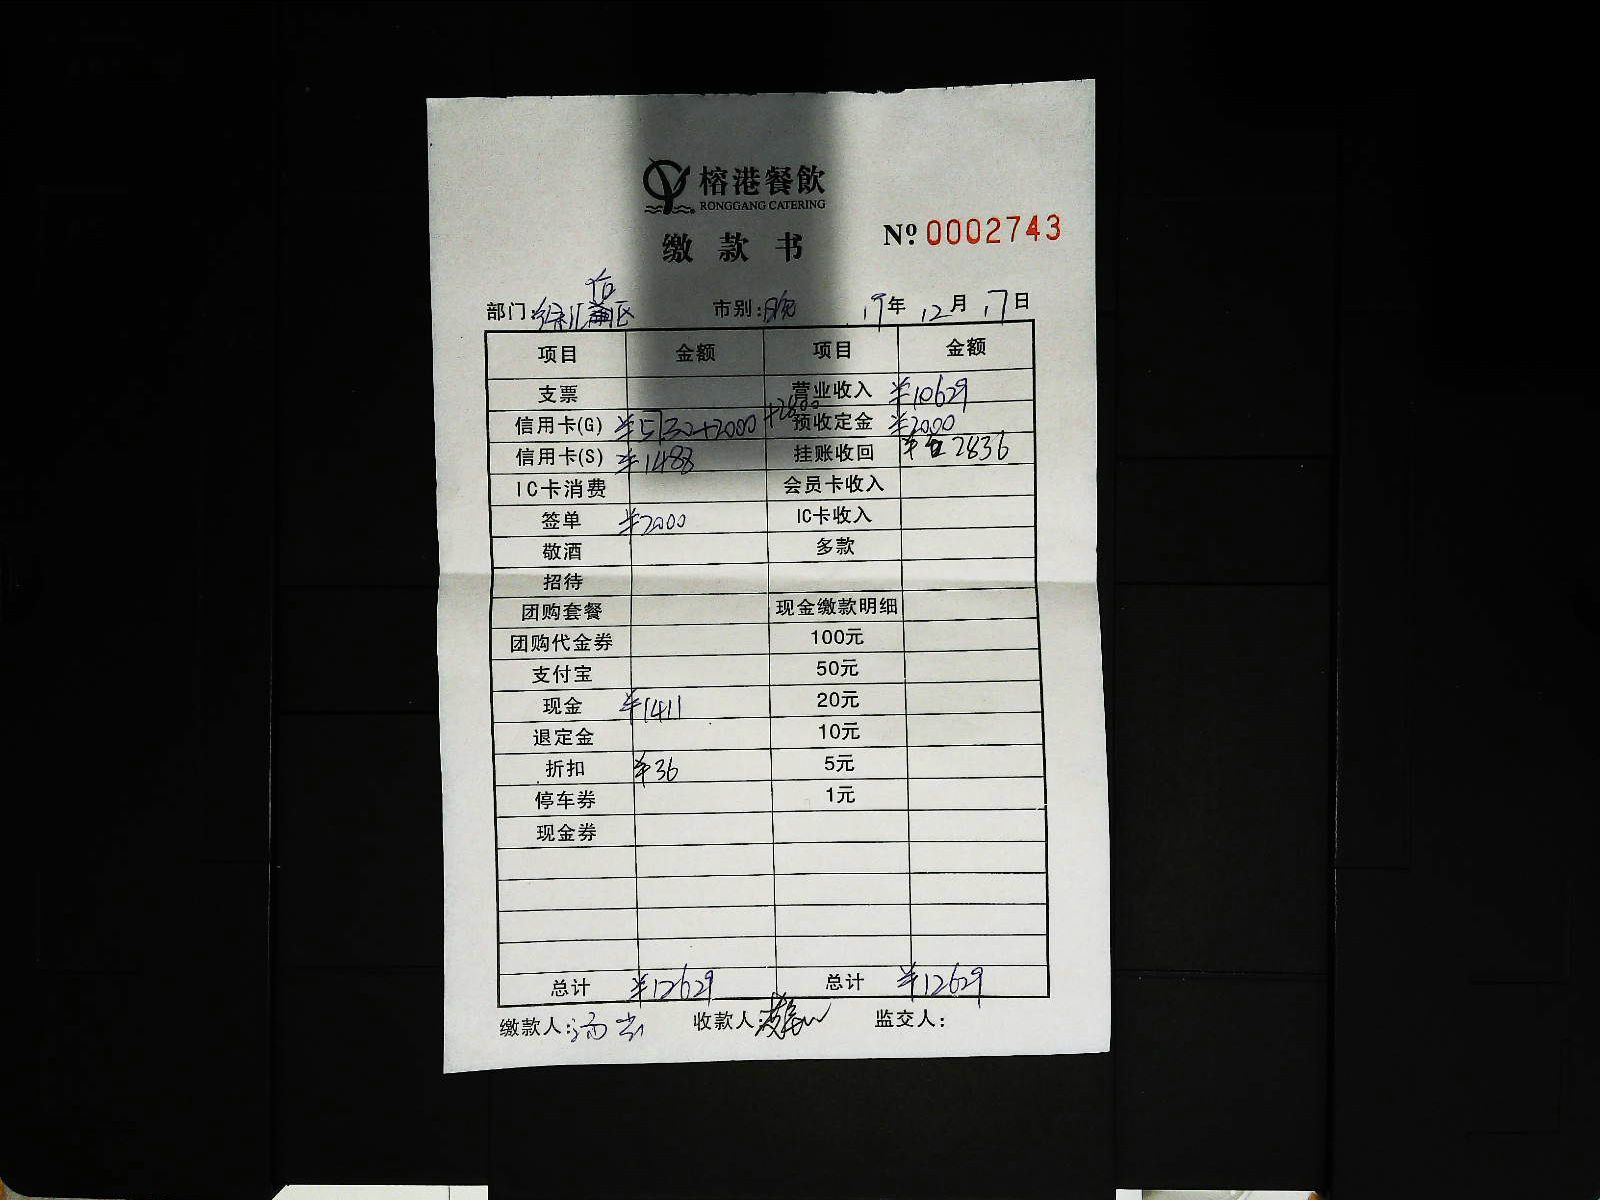 榕港餐飲
RONGGANG CATERING
缴款书
Nº 0002743
部门: 徐汇 区 市别: 晚 19年12月17日
项目 金额 项目 金额
支票 营业收入 ¥10629
信用卡(G) ¥5730+2000+2800 预收定金 ¥2000
信用卡(S) ¥1488 挂账收回 ¥2836
IC卡消费 会员卡收入
签单 ¥2000 IC卡收入
敬酒 多款
招待
团购套餐 现金缴款明细
团购代金券 100元
支付宝 50元
现金 ¥1411 20元
退定金 10元
折扣 ¥36 5元
停车券 1元
现金券
总计 ¥12629 总计 ¥12629
缴款人: 收款人: 监交人: